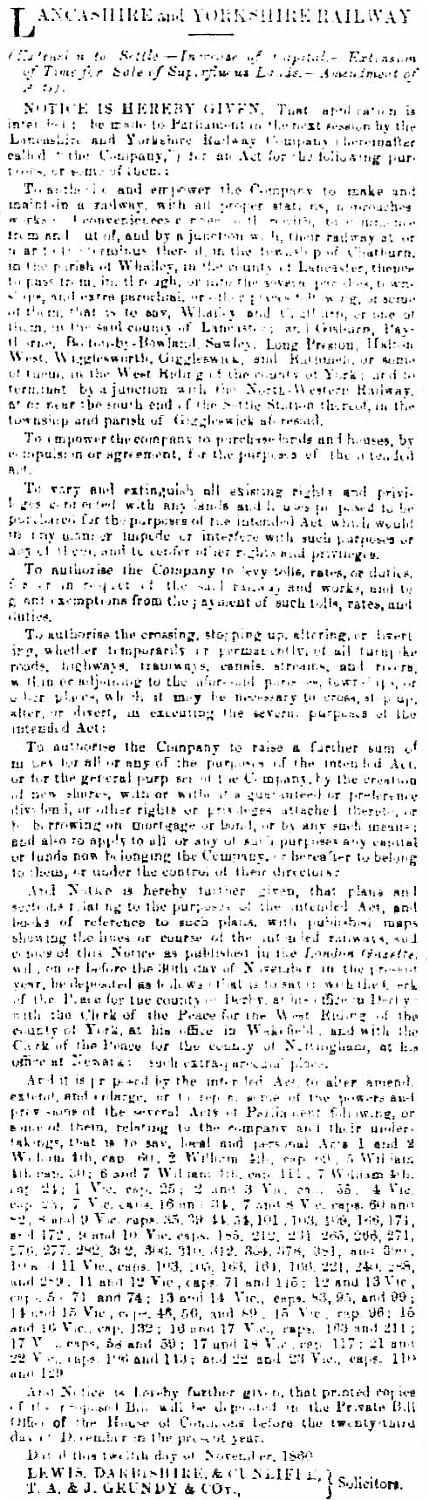 LANCASHIRE and YORKSHIRE RAILWAY
to Settle.—Increase of Capital.—Extension
of Time for Sale of Superfluous Lands.—Amendment of
NOTICE IS HEREBY GIVEN, That application is
be made to Parliament in the next session by the
Lancashire and Yorkshire Railway Company (hereinafter
called "the Company,") for an Act for the following pur-
or some of them:
To authorise and empower the Company to make and
maintain a railway, with all proper stations, approaches,
works, conveniences
from and out of, and by a junction with, their railway at or
terminus thereof, in the township of Chatburn,
in the parish of Whalley, in the county of Lancaster, thence
to pass from, in, through, or into the several parishes, town-
ships, and extra parochial, or other places following, or some
of them, that is to say, Whalley and Chatburn, or one of
them, in the said county of Lancaster; and Gisburn, Pay-
thorne, Bolton-by-Bowland, Sawley, Long Preston, Halton
West, Wigglesworth, Giggleswick, and Rathmell, or some
of them, in the West Riding of the county of York; and to
terminate by a junction with the North-Western Railway,
at or near the south end of the Settle Station thereof, in the
township and parish of Giggleswick aforesaid.
To empower the company to purchase lands and houses, by
compulsion or agreement, for the purposes of the intended
act.
To vary and extinguish all existing rights and privi-
leges connected with any lands and houses proposed to be
purchased for the purposes of the intended Act, which would
in any manner impede or interfere with such purposes or
any of them, and to confer other rights and privileges.
To authorise the Company to levy tolls, rates, or duties,
for or in respect of the said railway and works, and to
grant exemptions from the payment of such tolls, rates, and
duties.
To authorise the crossing, stopping up, altering, or divert
ing, whether temporarily or permanently, of all turnpike
roads, highways, tramways, canals, streams, and rivers,
within or adjoining to the aforesaid parishes, townships, or
other places, which it may be necessary to cross, stop up,
alter, or divert, in executing the several purposes of the
intended Act:
To authorise the Company to raise a further sum of
money for all or any of the purposes of the intended Act,
or for the general purposes of the Company, by the creation
of new shares, with or without a guaranteed or preference
dividend, or other rights or privileges attached thereto, or
by borrowing on mortgage or bond, or by any such means;
and also to apply to all or any of such purposes any capital
or funds now belonging the Company, or hereafter to belong
to them, or under the control of their directors:
And Notice is hereby further given, that plans and
sections relating to the purposes of the intended Act, and
books of reference to such plans, with published maps
showing the lines or course of the intended railways, and
copies of this Notice as published in the London Gazette,
will, on or before the 30th day of November in the present
year, be deposited as follows (that is to say): with the Clerk
of the Peace for the county of Derby, at his office in Derby;
with the Clerk of the Peace for the West Riding of the
county of York, at his office in Wakefield, and with the
Clerk of the Peace for the county of Nottingham, at his
office at Newark: such extra-parochial place.
And it is proposed by the intended Act, to alter, amend,
extend, and enlarge, or to repeal some of the powers and
provisions of the several Acts of Parliament following, or
some of them, relating to the company and their under-
takings, that is to say, local and personal Acts 1 and 2
William 4th, cap. 60, 2 William 4th, cap. 69, 5 William
4th cap. 30; 6 and 7 William 4th, cap. 111; 7 William 4th,
cap. 24; 1 Vic. cap. 25; 2 and 3 Vic. cap. 55, 4 Vic.
7 Vic. caps. 16 and 34, 7 and 8 Vic. caps. 60 and
82, 8 and 9 Vic. caps. 35, 39, 44, 54, 101, 103, 109, 166, 171,
and 172, 9 and 10 Vic. caps. 185, 212, 231, 265, 296, 271,
276, 277, 282, 302, 306, 310, 312, 354, 378, 381, and
10 and 11 Vic., caps. 103, 105, 163, 164, 166, 221, 240, 285,
and 289, 11 and 12 Vic., caps. 71 and 115; 12 and 13 Vic.,
71 and 74; 13 and 14 Vic., caps. 83, 95, and 99;
14 and 15 Vic., caps. 46, 56, and 89, 15 Vic., cap. 96; 15
and 16 Vic., cap. 132; 16 and 17 Vic., caps. 163 and 211;
17 Vic., caps. 58 and 59; 17 and 18 Vic., cap. 117; 21 and
22 Vic., caps. 106 and 143; and 22 and 23 Vic., caps. 110
and 129
And Notice is hereby further given, that printed copies
of the proposed Bill will be deposited in the Private Bill
Office of the House of Commons before the twenty-third
day of December in the present year.
Dated this twelfth day of November, 1860
LEWIS, DARBISHIRE, & CUNLIFFE, } Solicitors.
T. A. & J. GRUNDY & COY.,